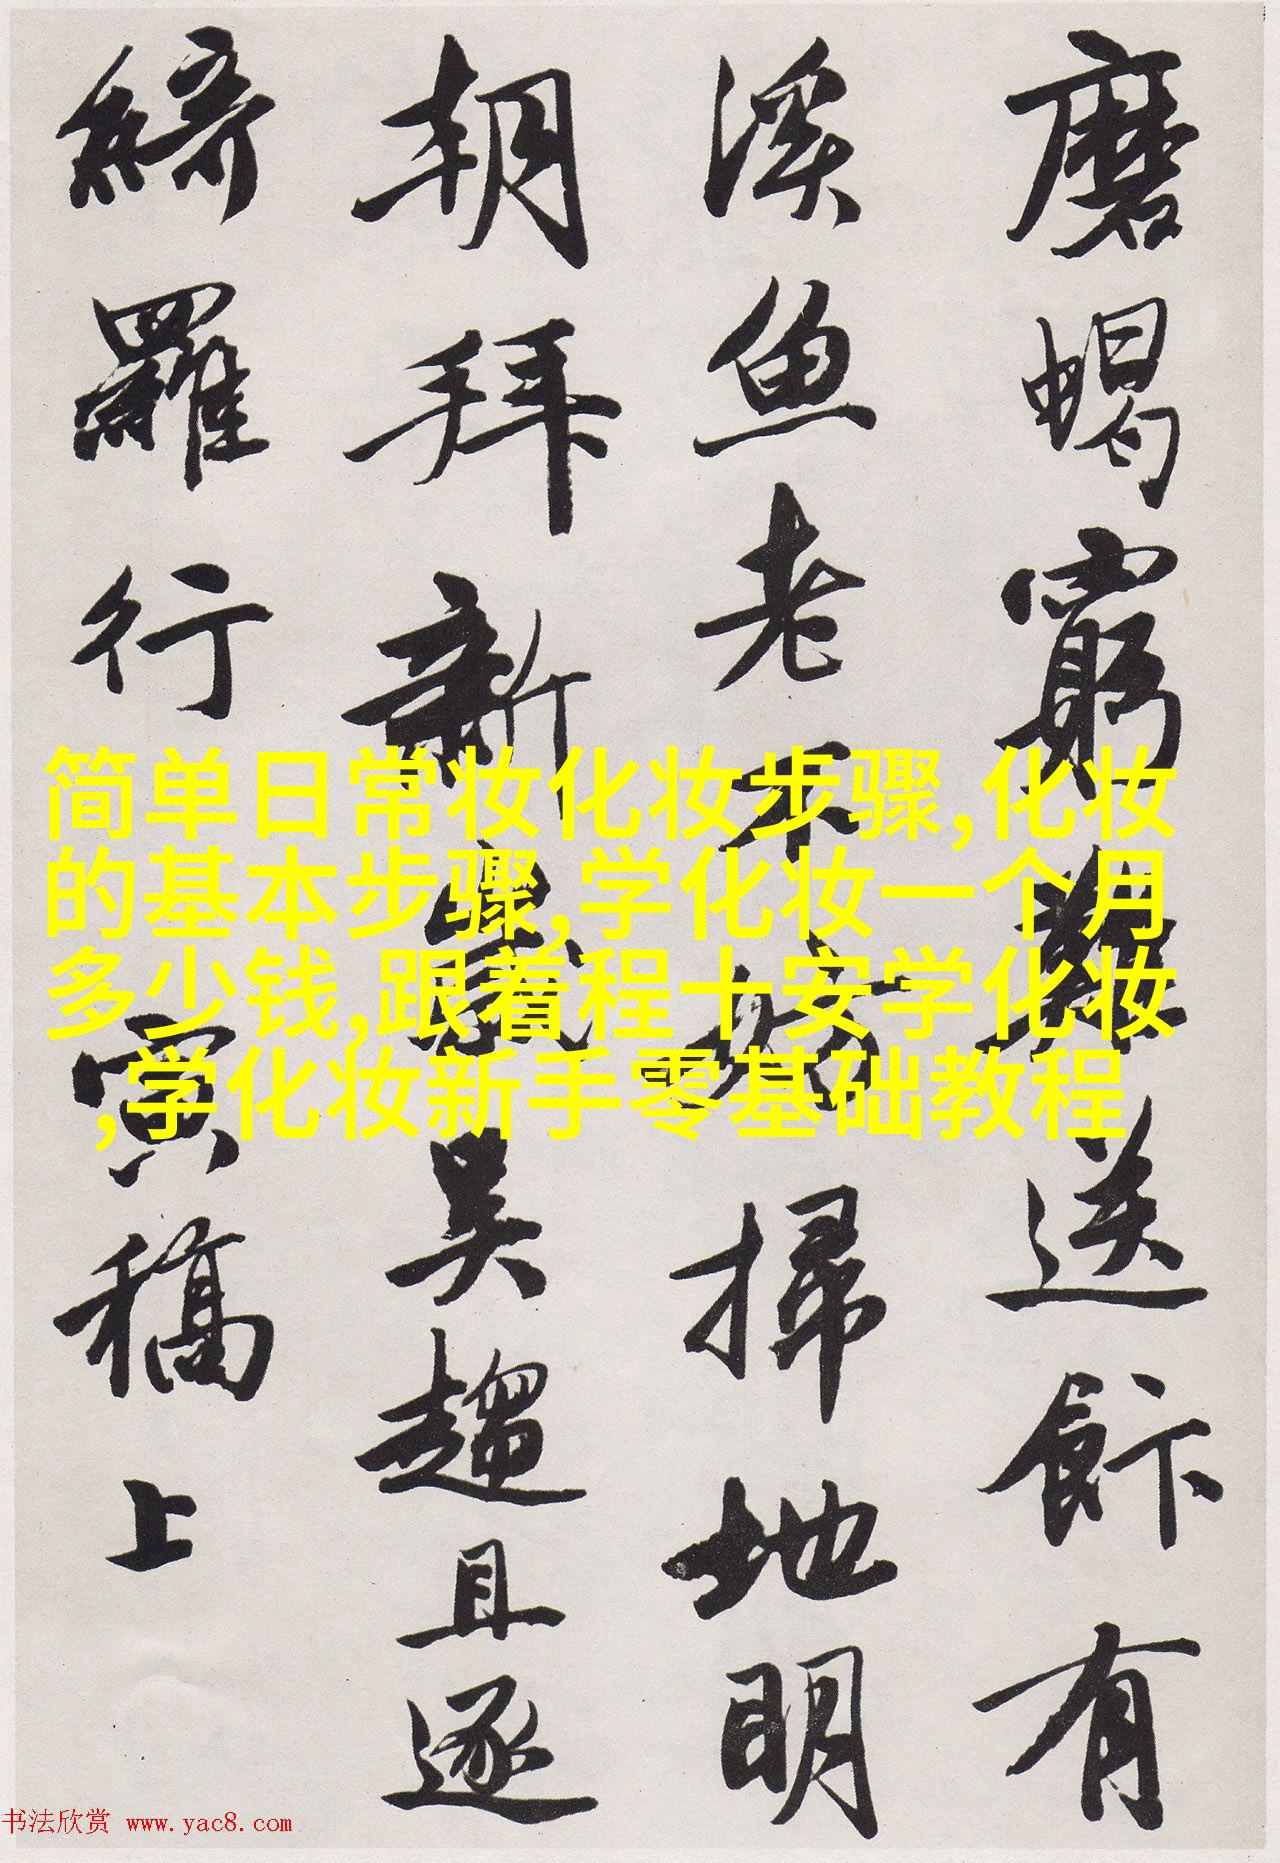 磨蝎窮難送餅有
溪魚老不妨掃地明
朝拜新歲吳趨且逐
綺羅行 寅稿上
简单日常妆化妆步骤,化妆
的基本步骤,学化妆一个月
多少钱,跟着程十安学化妆
,学化妆新手零基础教程
书法欣赏 www.yac8.com